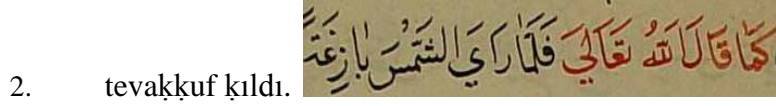 2. tevaḳḳuf ḳıldı. كَمَا قَالَ اللّٰهُ تَعَالَي فَلَمَّا رَاَي الشَّمْسَ بَازِغَةً